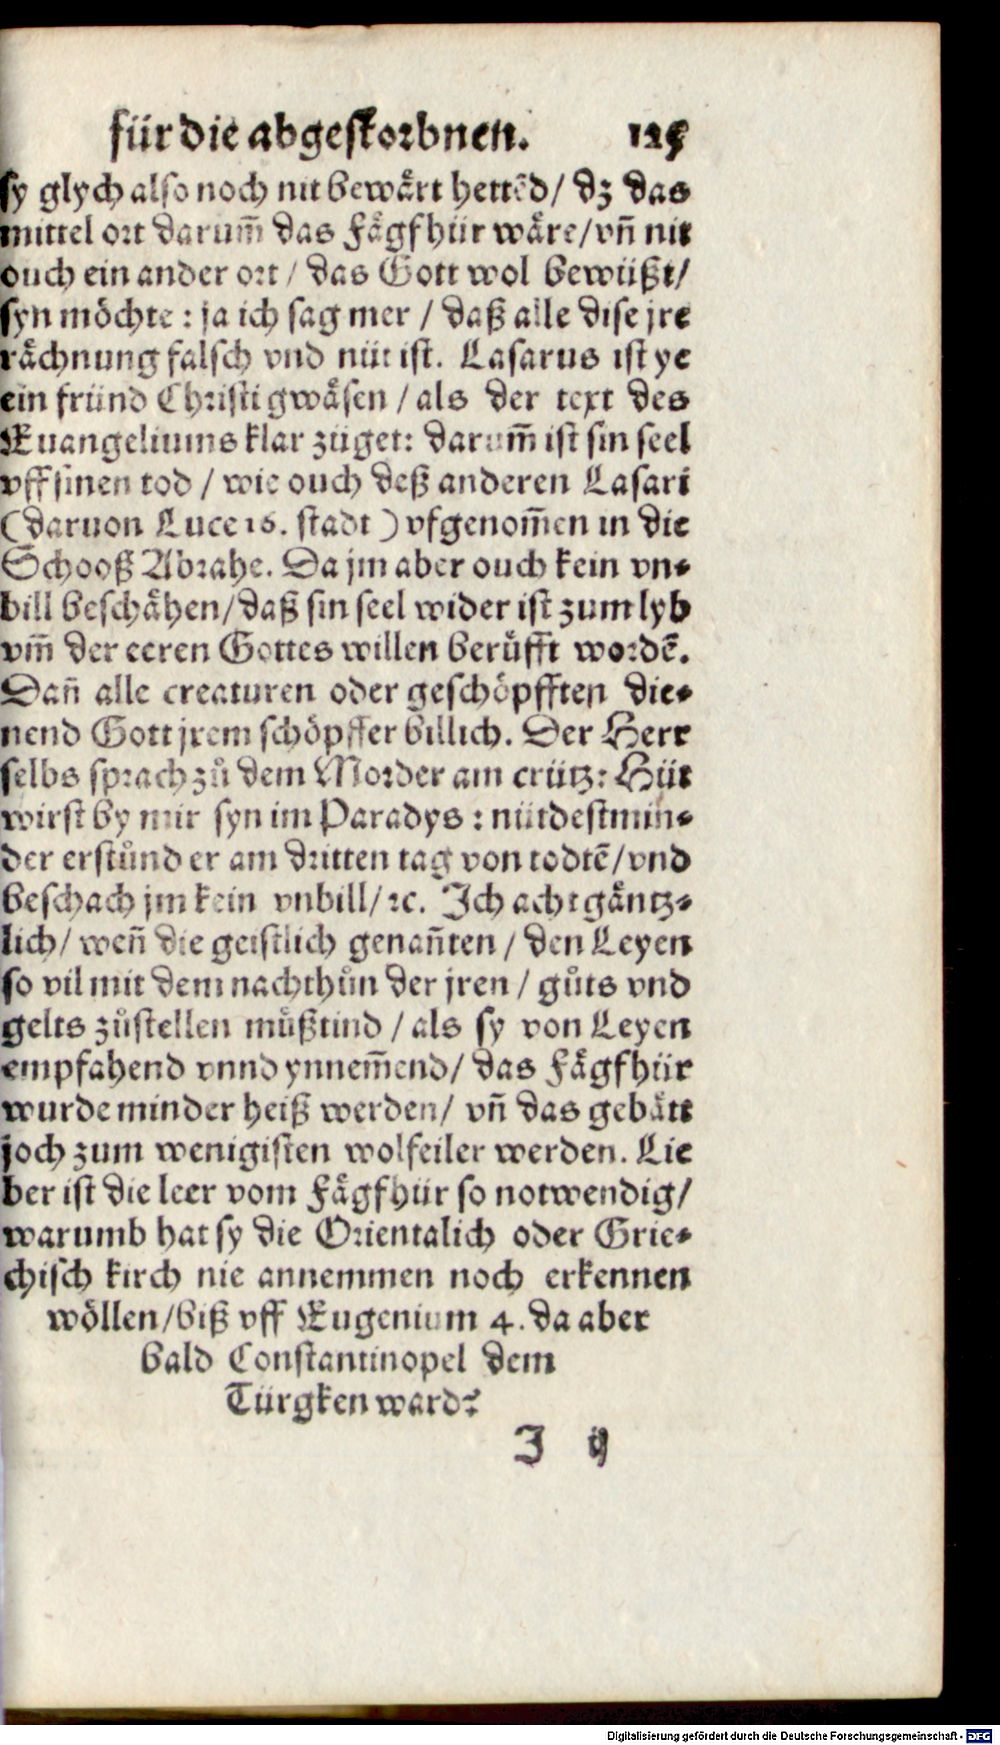 für die abgestorbnen. 125
sy glych also noch nit bewaͤrt hettẽd/ dz das
mittel ort darum̃ das Faͤgfhür waͤre/vñ nit
ouch ein ander ort / das Gott wol bewüßt/
syn möchte : ja ich sag mer / daß alle dise jre
raͤchnung falsch vnd nüt ist. Lasarus ist ye
ein fründ Christi gwaͤsen / als der text des
Euangeliums klar züget: darum̃ ist sin seel
vff sinen tod / wie ouch deß anderen Lasari
(daruon Luce 16. stadt ) vfgenom̃en in die
Schooß Abrahe. Da jm aber ouch kein vn⸗
bill beschaͤhen/daß sin seel wider ist zum lyb
vm̃ der eeren Gottes willen beruͤfft wordẽ.
Dañ alle creaturen oder geschöpfften die⸗
nend Gott jrem schöpffer billich. Der Herr
selbs sprach zů dem Morder am crütz: Hüt
wirst by mir syn im Paradys : nütdestmin⸗
der erstůnd er am dritten tag von todtẽ/vnd
beschach jm kein vnbill/ꝛc. Ich acht gaͤntz⸗
lich/ weñ die geistlich genañten / den Leyen
so vil mit dem nachthůn der jren / gůts vnd
gelts zůstellen muͤßtind / als sy von Leyen
empfahend vnnd ynnem̃end/ das Faͤgfhür
wurde minder heiß werden/ vñ das gebaͤtt
joch zum wenigisten wolfeiler werden. Lie
ber ist die leer vom Faͤgfhür so notwendig/
warumb hat sy die Orientalich oder Grie⸗
chisch kirch nie annemmen noch erkennen
wöllen/biß vff Eugenium 4. da aber
bald Constantinopel dem
Türgken ward?
I ij
Digitalisierung gefördert durch die Deutsche Forschungsgemeinschaft - DFG